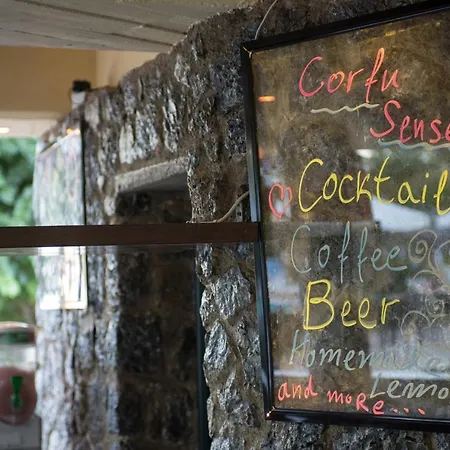 Corfu
Sense
Cocktail
Coffee
Beer
Homema
Lemo
and more...